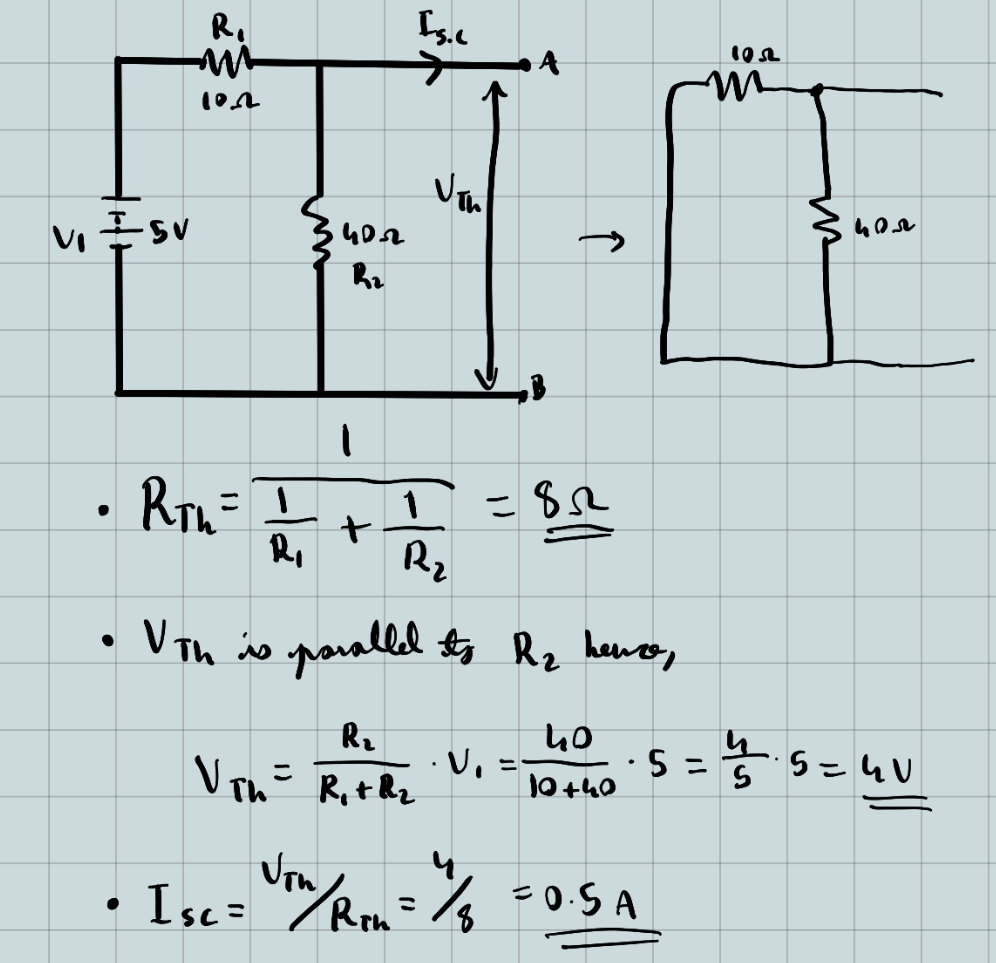 R₁
I s.c
A
10Ω
10Ω
V Th
V₁ 5V
40Ω
R₂
→
40Ω
B
• R Th = 1 / (1/R₁ + 1/R₂) = 8Ω
• V Th is parallel to R₂ hence,
V Th = R₂ / (R₁ + R₂) · V₁ = 40 / (10+40) · 5 = 4/5 · 5 = 4V
• I sc = V Th / R Th = 4/8 = 0.5 A